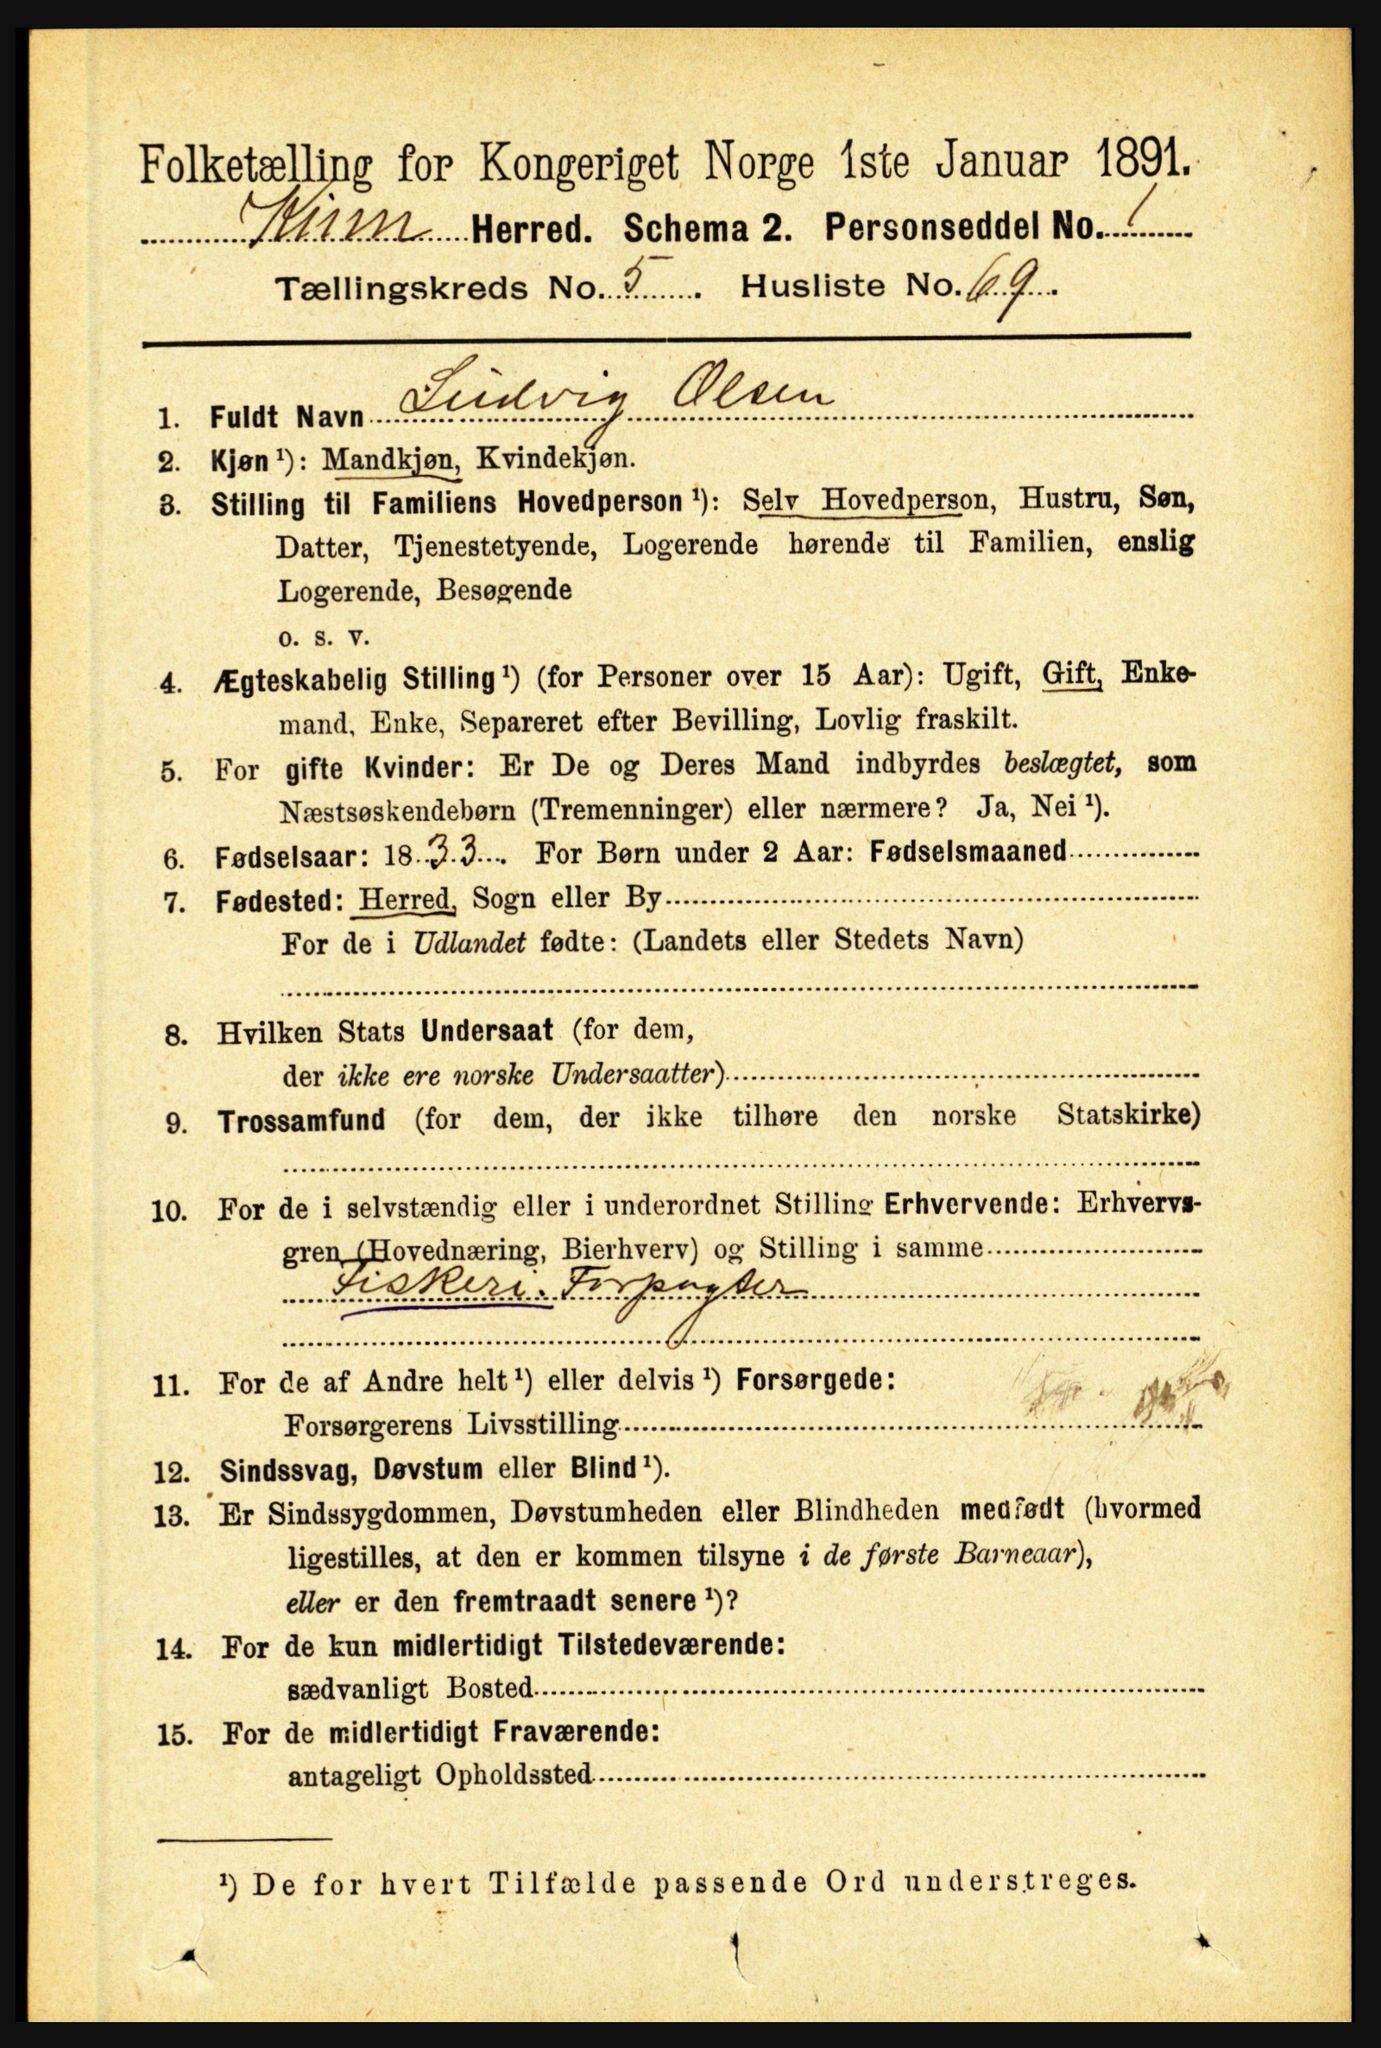 Folketælling for Kongeriget Norge 1ste Januar 1891.
Kinn Herred. Schema 2. Personseddel No. 1
Tællingskreds No. 5. Husliste No. 69.
1. Fuldt Navn Ludvig Olsen
2. Kjøn ¹): Mandkjøn, Kvindekjøn.
3. Stilling til Familiens Hovedperson ¹): Selv Hovedperson, Hustru, Søn,
Datter, Tjenestetyende, Logerende hørende til Familien, enslig
Logerende, Besøgende
o. s. v.
4. Ægteskabelig Stilling ¹) (for Personer over 15 Aar): Ugift, Gift, Enke-
mand, Enke, Separeret efter Bevilling, Lovlig fraskilt.
5. For gifte Kvinder: Er De og Deres Mand indbyrdes beslægtet, som
Næstsøskendebørn (Tremenninger) eller nærmere? Ja, Nei ¹).
6. Fødselsaar: 1833. For Børn under 2 Aar: Fødselsmaaned
7. Fødested: Herred, Sogn eller By
For de i Udlandet fødte: (Landets eller Stedets Navn)
8. Hvilken Stats Undersaat (for dem,
der ikke ere norske Undersaatter)
9. Trossamfund (for dem, der ikke tilhøre den norske Statskirke)
10. For de i selvstændig eller i underordnet Stilling Erhvervende: Erhvervs-
gren (Hovednæring, Bierhverv) og Stilling i samme
Fiskeri. Forpagter
11. For de af Andre helt ¹) eller delvis ¹) Forsørgede:
Forsørgerens Livsstilling
12. Sindssvag, Døvstum eller Blind ¹).
13. Er Sindssygdommen, Døvstumheden eller Blindheden medfødt (hvormed
ligestilles, at den er kommen tilsyne i de første Barneaar),
eller er den fremtraadt senere ¹)?
14. For de kun midlertidigt Tilstedeværende:
sædvanligt Bosted
15. For de midlertidigt Fraværende:
antageligt Opholdssted
¹) De for hvert Tilfælde passende Ord understreges.